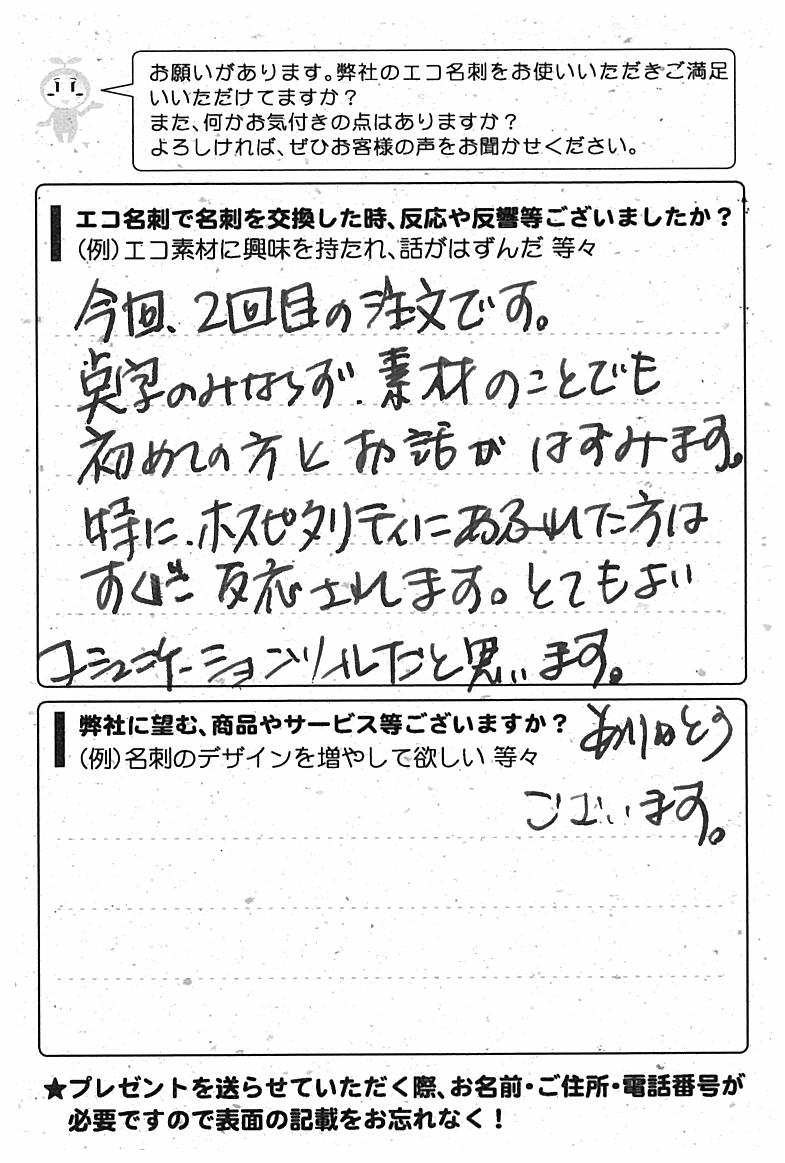 お願いがあります。弊社のエコ名刺をお使いいただきご満足
いいただけてますか？
また、何かお気付きの点はありますか？
よろしければ、ぜひお客様の声をお聞かせください。
エコ名刺で名刺を交換した時、反応や反響等ございましたか？
（例）エコ素材に興味を持たれ、話がはずんだ 等々
今回、2回目の注文です。
点字のみならず、素材のことでも
初めての方とお話がはずみます。
特に、ホスピタリティにあふれた方は
すぐに反応されます。とてもよい
コミュニケーションツールだと思います。
弊社に望む、商品やサービス等ございますか？
（例）名刺のデザインを増やして欲しい 等々
ありがとう
ございます。
★プレゼントを送らせていただく際、お名前・ご住所・電話番号が
必要ですので表面の記載をお忘れなく！